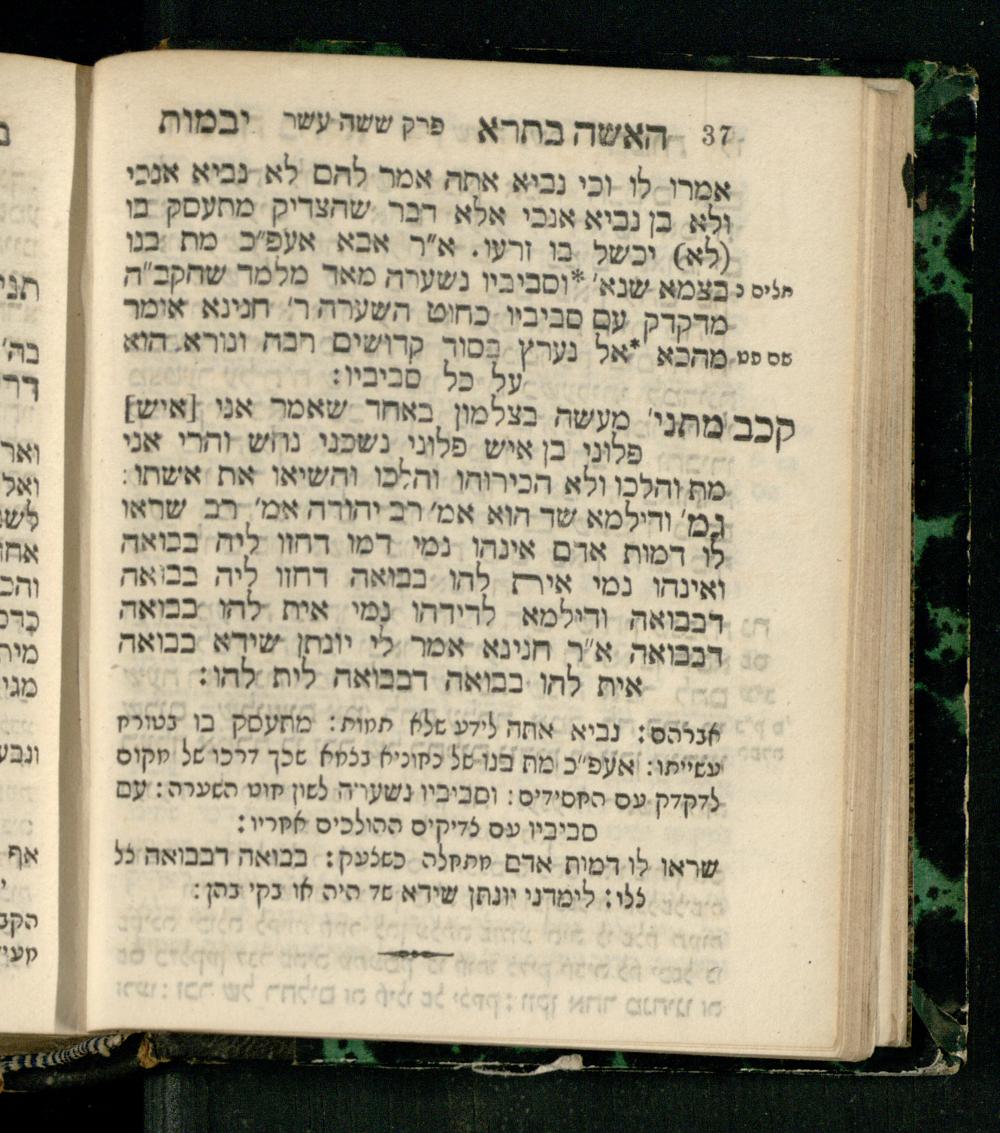 37 האשה בתרא פרק ששה עשר יבמות
אמרו לו וכי נביא אתה אמר להם לא נביא אנכי
ולא בן נביא אנכי אלא דבר שהצדיק מתעסק בו
(לא) יכשל בו זרעו. א״ר אבא אעפ״כ מת בנו
תלים נ בצמא שנא׳ *וסביביו נשערה מאד מלמד שהקב״ה
מדקדק עם סביביו כחוט השערה ר׳ חנינא אומר
שם פט מהכא *אל נערץ בסוד קדושים רבה ונורא הוא
על כל סביביו:
קכב מתני׳ מעשה בצלמון באחד שאמר אני [איש]
פלוני בן איש פלוני נשכני נחש והרי אני
מת והלכו ולא הכירוהו והלכו והשיאו את אשתו:
גמ׳ ודילמא שד הוא אמ׳ רב יהודה אמ׳ רב שראו
לו דמות אדם אינהו נמי דמו דחזו ליה בבואה
ואינהו נמי אית להו בבואה דחזו ליה בבואה
דבבואה ודילמא לדידהו נמי אית להו בבואה
דבבואה א״ר חנינא אמר לי יונתן שידא בבואה
אית להו בבואה דבבואה לית להו:
אברהם: נביא אתה לידע שלא תמות: מתעסק בו בטורח
עשייתו: אעפ״כ מת בנו של כחוניא בצמא שכך דרכו של מקום
לדקדק עם החסידים: וסביביו נשערה לשון חוט השערה: עם
סביביו עם צדיקים ההולכים אחריו:
שראו לו דמות אדם מתחלה כשצעק: בבואה דבבואה צל
צלו: לימדני יונתן שידא שד היה או בקי בהן: